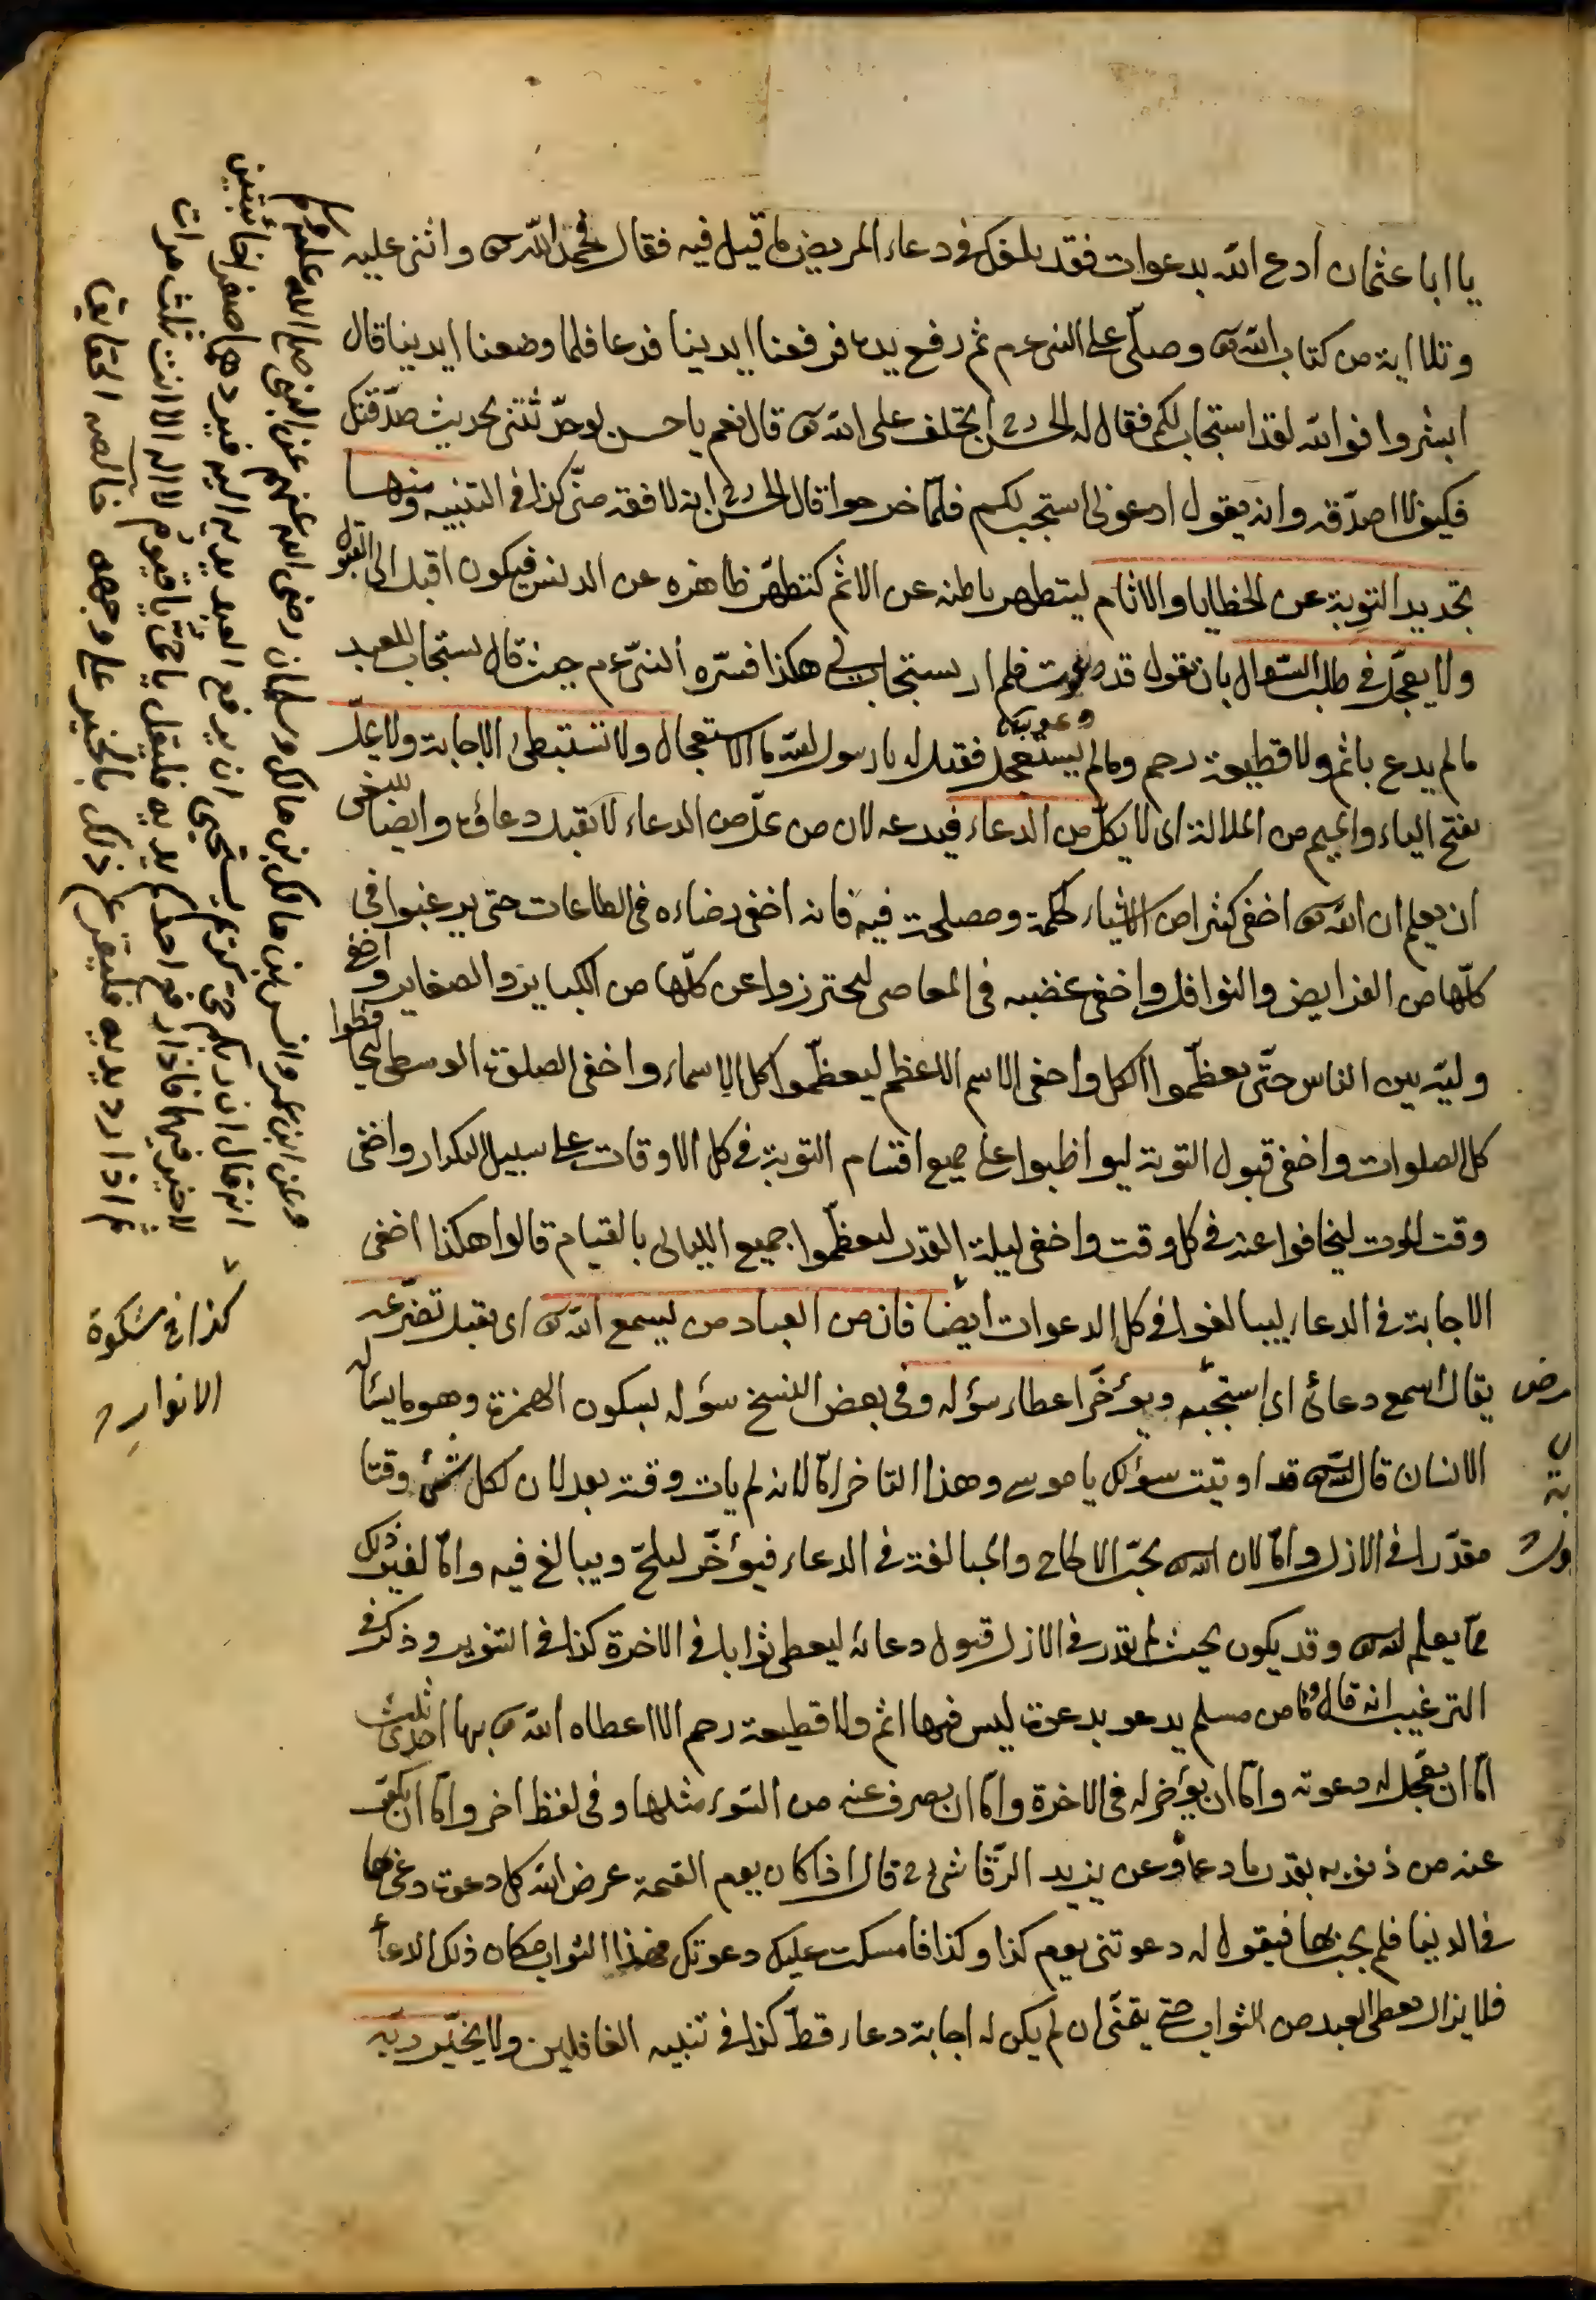 يا ابا عثمان ادع الله بدعوات فقد بلغك في دعاء المريض ما قيل فيه فقال فحمد الله تع واثنى عليه
وتلا اية من كتاب الله تع وصلّى على النبى عم ثم رفع يده فرفعنا ايدينا فدعا فلما وضعنا ايدينا قال
ابشروا فوالله لقد استجاب لكم فقال له الحسن اتختلف على الله تع قال نعم يا حسن لو حدّثتنى بحديث صدّقتك
فكيف لا اصدّقه وانه يقول ادعونى استجب لكم فلمّا خرجوا قال الحسن انه لافقه منّى كذا فى التنبيه ومنها
تجديد التوبة عن الخطايا والاثام ليتطهر باطنه عن الاثم كتطهّر ظاهره عن الدنس فيكون اقبل الى القبول
ولا يعجّل فى طلب السّؤال بان يقول قد دعوت فلم ار يستجاب لى هكذا فسّره النبىّ عم حيث قال يستجاب للعبد
ما لم يدع باثم ولا قطيعة رحم وما لم يستعجل فقيل له يا رسول الله ما الاستعجال ولا تستبطئ الاجابة ولا يملّ
بفتح الياء والميم من الملالة اى لا يكلّ من الدعاء فيدعه لان من ملّ من الدعاء لا تقبل دعاؤه وايضا ينبغى
ان يعلم ان الله تع اخفى كثيرا من الاشياء لحكمة ومصلحة فيه فانه اخفى رضاءه فى الطاعات حتى يرغبوا فى
كلّها من الفرايض والنوافل واخفى غضبه فى المعاصى ليحترزوا عن كلّها من الكباير والصغاير واخفى
وليّه بين الناس حتّى يعظّموا الكل واخفى الاسم الاعظم ليعظّموا كل الاسماء واخفى الصلوة الوسطى ليحافظوا
كل الصلوات واخفى قبول التوبة ليواظبوا على جميع اقسام التوبة فى كل الاوقات على سبيل التكرار واخفى
وقت الموت ليخافوا عنه فى كل وقت واخفى ليلة القدر ليعظّموا جميع الليالى بالقيام قالوا هكذا اخفى
الاجابة فى الدعاء ليبالغوا فى كل الدعوات ايضا فان من العباد من يسمع الله تع اى يقبل تضرّعه
يقال اسمع دعائى اى استجبه ويؤخّر اعطاء سؤله وفى بعض النسخ سؤله بسكون الهمزة وهو ما يسأله
الانسان قال الله تع قد اوتيت سؤلك يا موسى وهذا التاخر امّا لانه لم يات وقته بعد لان لكل شئ وقتا
مقدّرا فى الازل وامّا لان الله تع يحبّ الالحاح والمبالغة فى الدعاء فيؤخّر ليلحّ ويبالغ فيه وامّا لغير ذلك
ممّا يعلم الله تع وقد يكون بحيث لم يقدر فى الازل قبول دعائه ليعطى ثوابا فى الاخرة كذا فى التنوير وذكر فى
الترغيب انه قال ما من مسلم يدعو بدعوة ليس فيها اثم ولا قطيعة رحم الا اعطاه الله تع بها احدى ثلث
امّا ان يعجّل له دعوته وامّا ان يؤخر له فى الاخرة وامّا ان يصرف عنه من السّوء مثلها وفى لفظ اخر وامّا ان يكفّر
عنه من ذنوبه بقدر ما دعا وعن يزيد الرّقاشى قال اذا كان يوم القيمة عرض الله كل دعوة دعى بها
فى الدنيا فلم يجبها فيقول له دعوتنى يوم كذا وكذا فامسكت عليك دعوتك فهذا الثواب مكان ذلك الدعاء
فلا يزال يعطى العبد من الثواب حتى يتمنّى ان لم يكن له اجابة دعاء قطّ كذا فى تنبيه الغافلين ولا يخيّر ربّه
وعن ابن عمر وانس بن مالك وسلمان رضى الله عنهم عن النبى صلى الله عليه وسلم
انه قال ان ربكم حىّ كريم يستحيى ان يرفع العبد يديه اليه فيردهما صفرا خائبتين
لا خير فيهما فاذا رفع احدكم يديه فليقل يا حىّ يا قيوم لا اله الا انت ثلث مرات
ثم اذا رد يديه فليفرغ ذلك بالخير على وجهه خالصة الحقايق
كذا فى مشكوة
الانوار